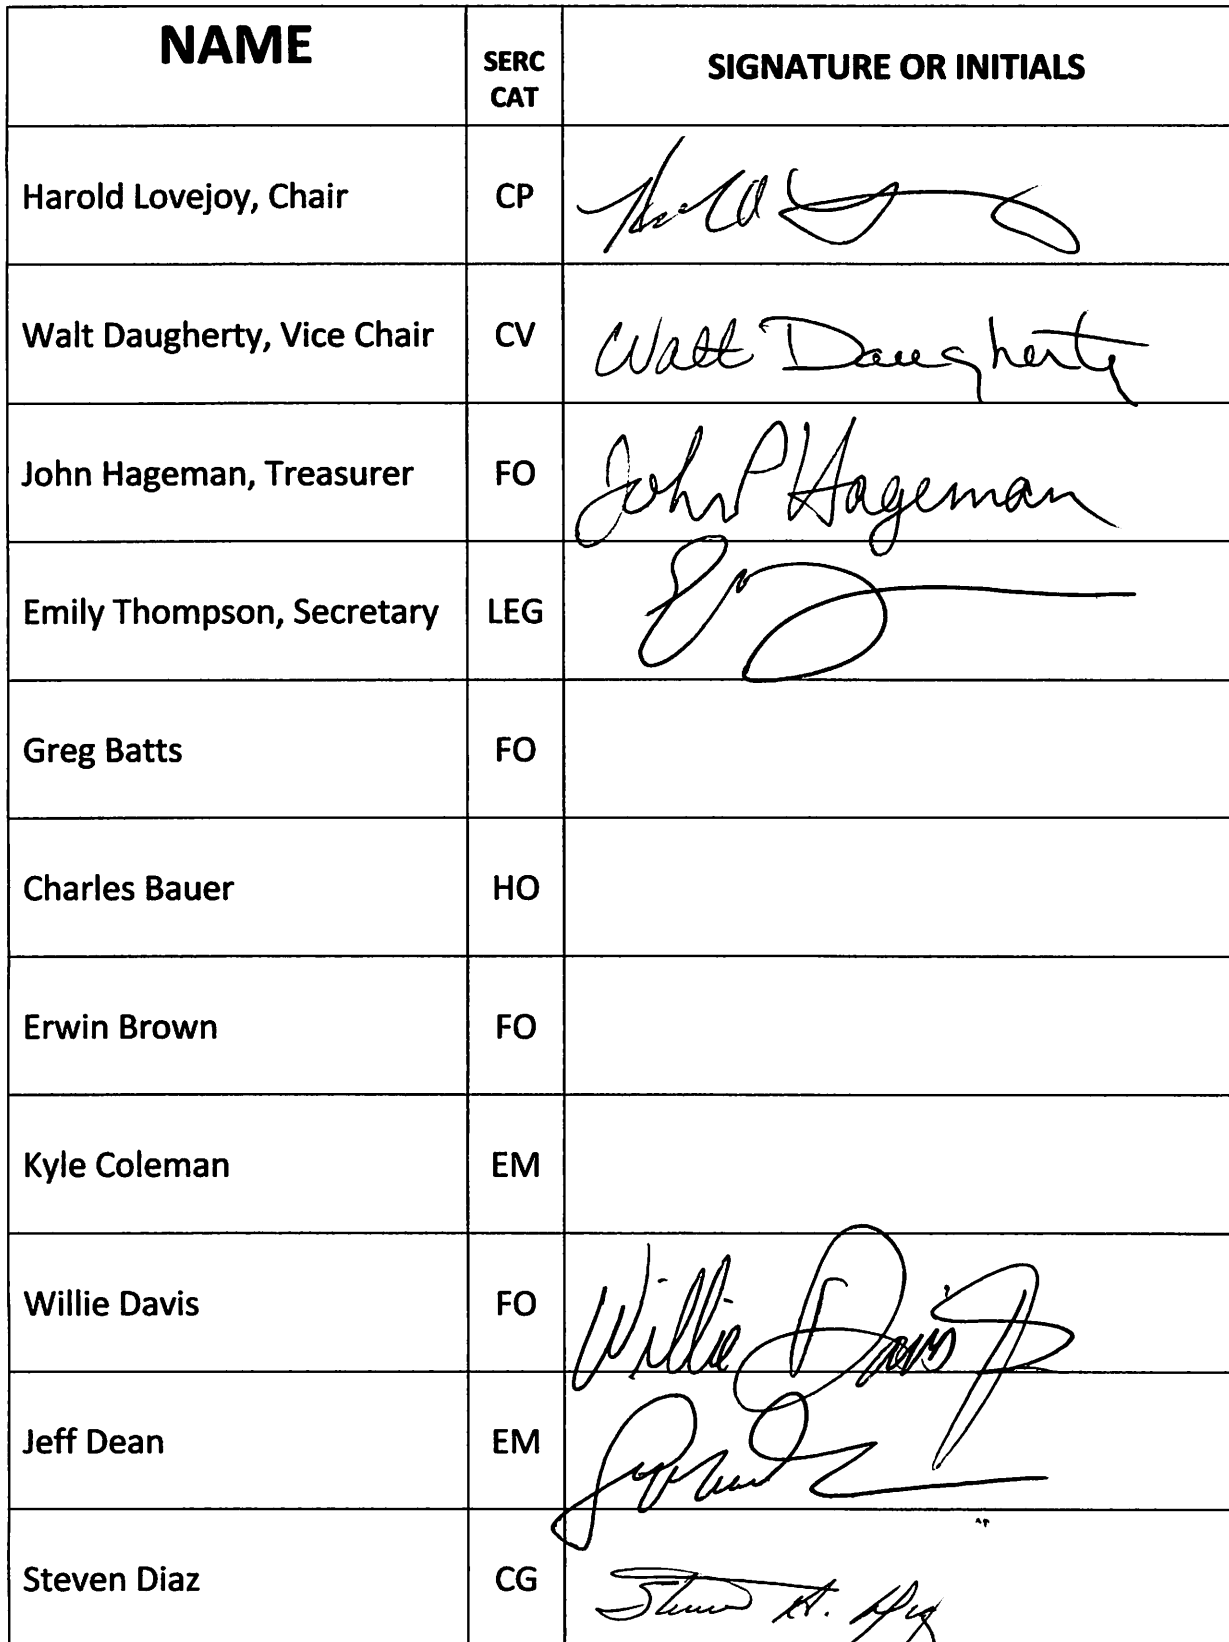 NAME
SERC
CAT
SIGNATURE OR INITIALS
Harold Lovejoy, Chair
CP
Walt Daugherty, Vice Chair
CV
Walt Daugherty
John Hageman, Treasurer
FO
John P Hageman
Emily Thompson, Secretary
LEG
Greg Batts
FO
Charles Bauer
HO
Erwin Brown
FO
Kyle Coleman
EM
Willie Davis
FO
Willie Davis Jr
Jeff Dean
EM
Steven Diaz
CG